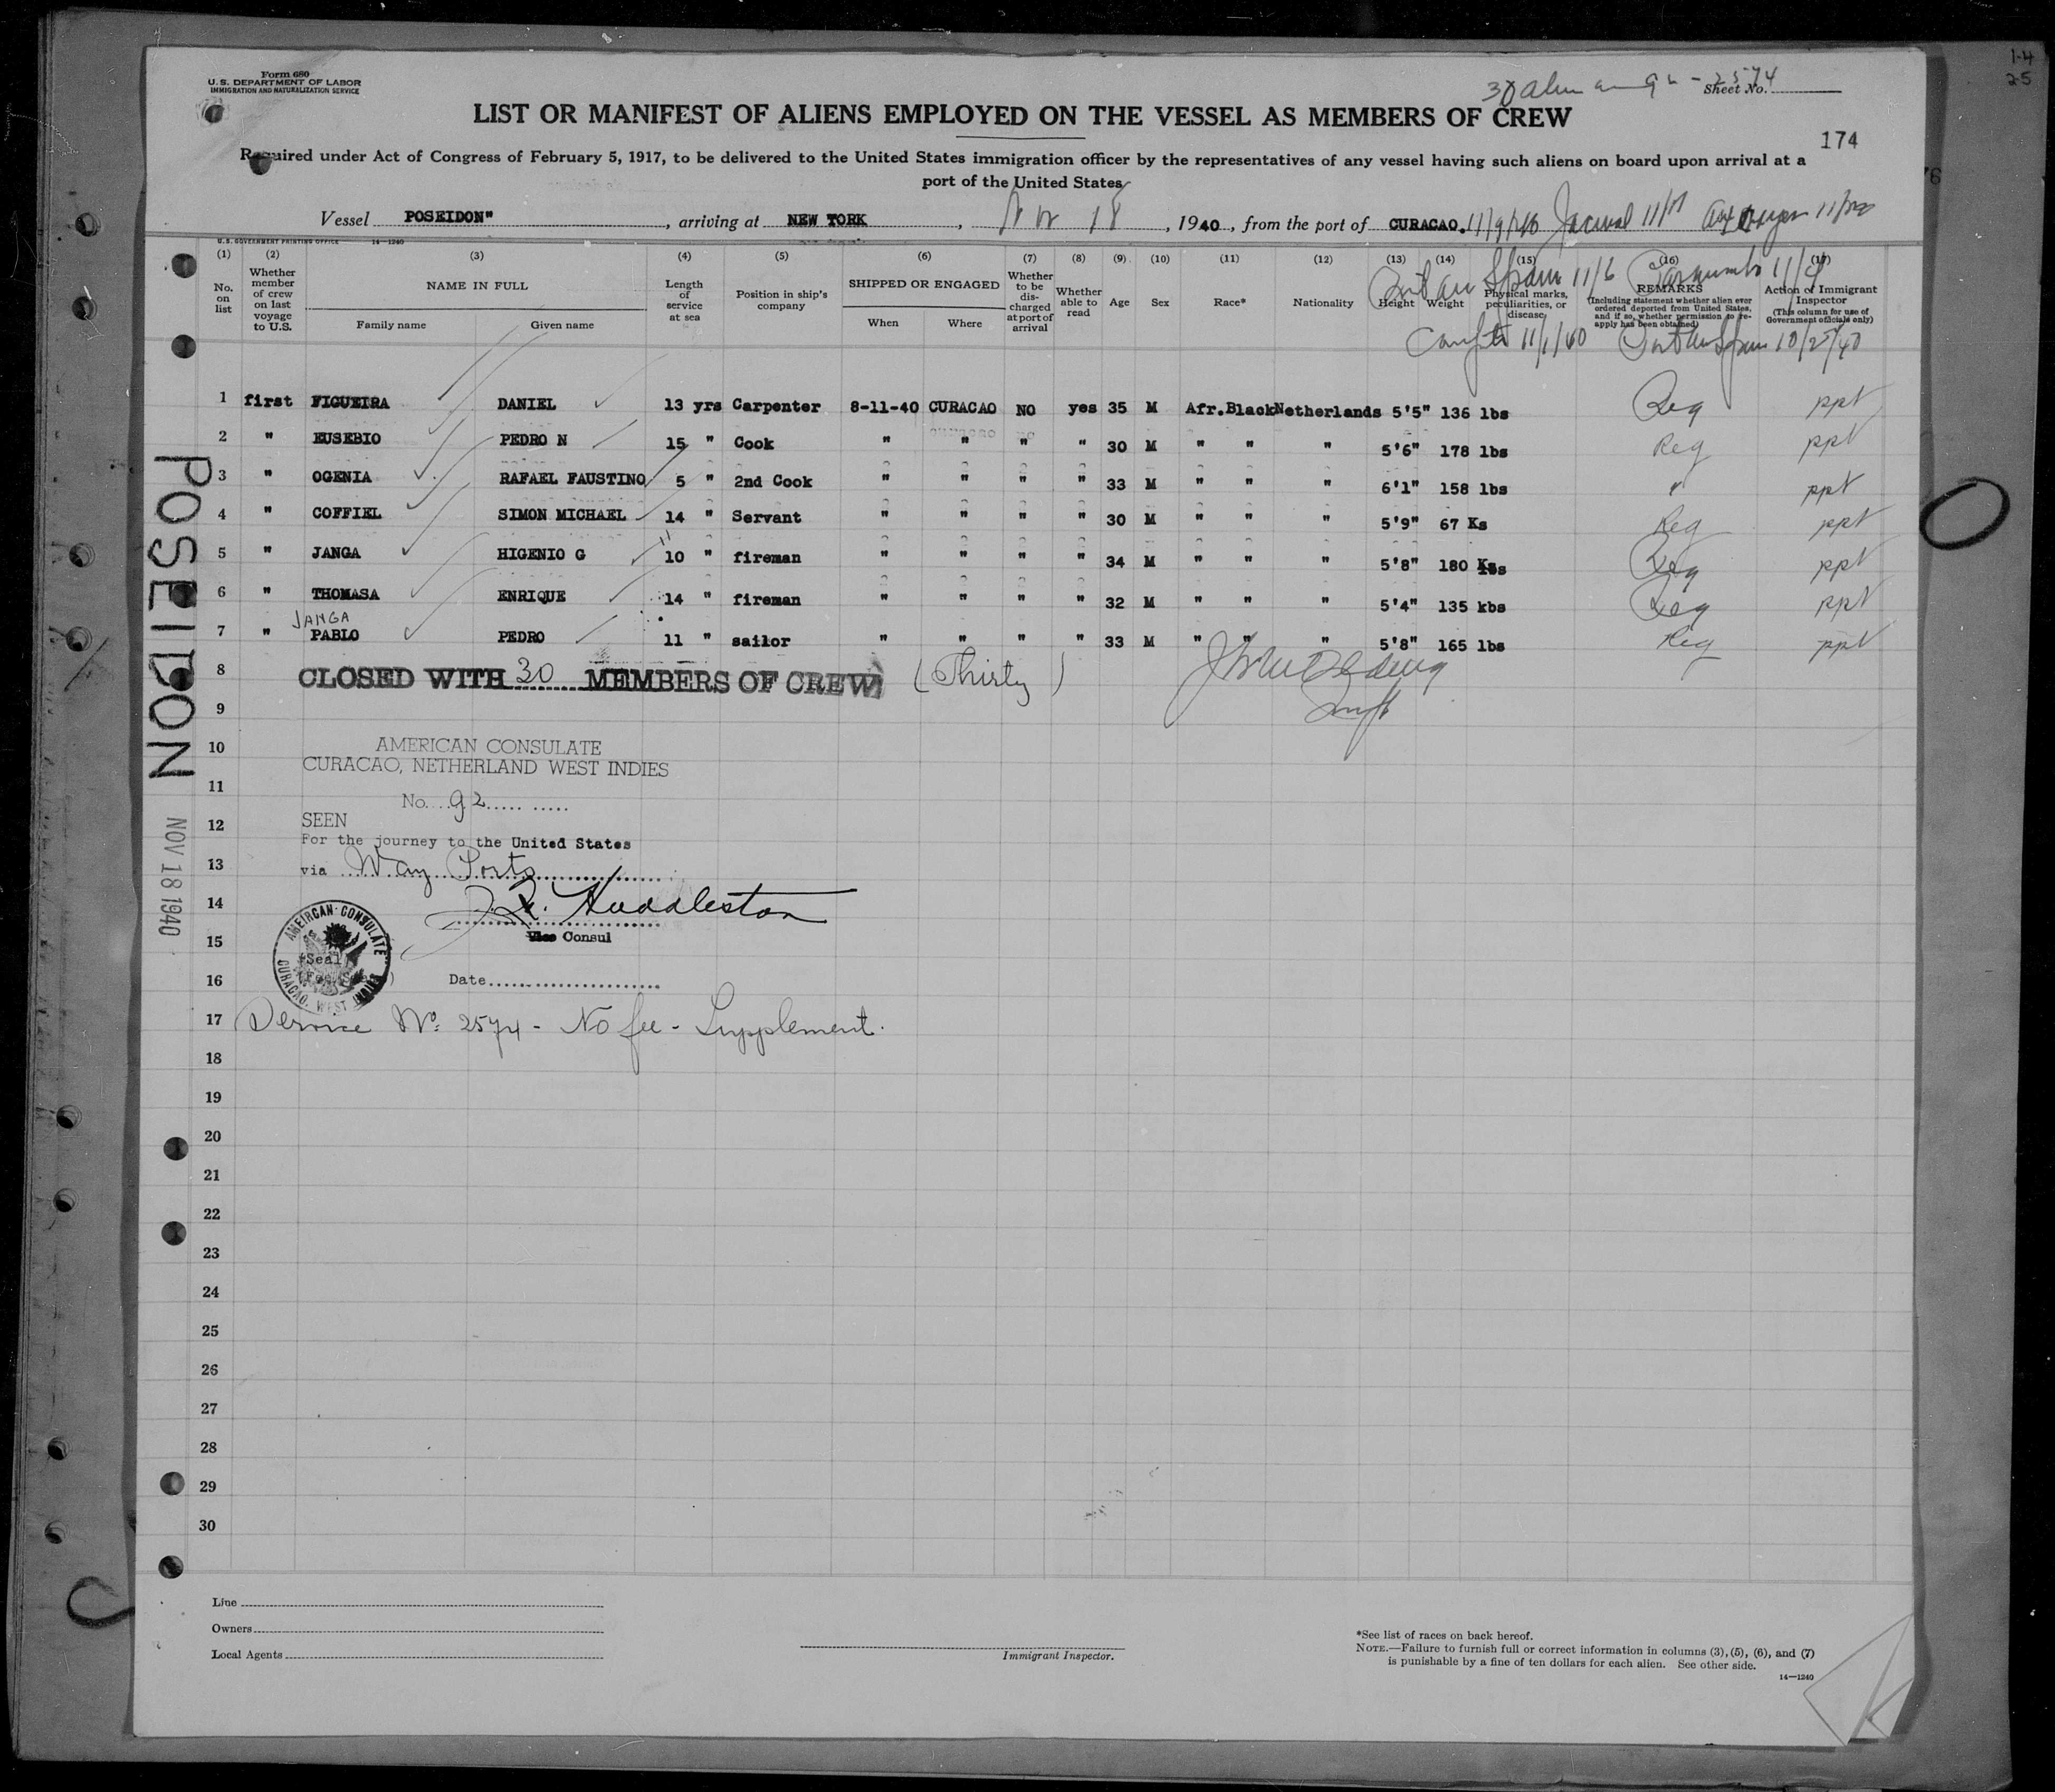 1-4
25
Form 680
U. S. DEPARTMENT OF LABOR
IMMIGRATION AND NATURALIZATION SERVICE
30 - 2574
Sheet No.
LIST OR MANIFEST OF ALIENS EMPLOYED ON THE VESSEL AS MEMBERS OF CREW
174
Required under Act of Congress of February 5, 1917, to be delivered to the United States immigration officer by the representatives of any vessel having such aliens on board upon arrival at a
port of the United States
Vessel POSEIDON" , arriving at NEW YORK , Nov 18 , 1940 , from the port of CURACAO. 11/9/40
U. S. GOVERNMENT PRINTING OFFICE 14—1240
(1) (2) (3) (4) (5) (6) (7) (8) (9) (10) (11) (12) (13) (14) (15) (16) (17)
Port au Spain 11/6
No. on list
Whether member of crew on last voyage to U.S.
NAME IN FULL
Family name Given name
Length of service at sea
Position in ship's company
SHIPPED OR ENGAGED
When Where
Whether to be discharged at port of arrival
Whether able to read
Age
Sex
Race*
Nationality
Height
Weight
Physical marks, peculiarities, or disease
REMARKS
(Including statement whether alien ever ordered deported from United States, and if so, whether permission to reapply has been obtained)
Action of Immigrant Inspector
(This column for use of Government officials only)
11/1/40 Port au Spain 10/25/40
1 first FIGUEIRA DANIEL 13 yrs Carpenter 8-11-40 CURACAO NO yes 35 M Afr.Black Netherlands 5'5" 136 lbs Reg ppt
2 " EUSEBIO PEDRO N 15 " Cook " " " " 30 M " " " 5'6" 178 lbs Reg ppt
3 " OGENIA RAFAEL FAUSTINO 5 " 2nd Cook " " " " 33 M " " " 6'1" 158 lbs " ppt
4 " COFFIEL SIMON MICHAEL 14 " Servant " " " " 30 M " " " 5'9" 67 Ks Reg ppt
5 " JANGA HIGENIO G 10 " fireman " " " " 34 M " " " 5'8" 180 lbs Reg ppt
6 " THOMASA ENRIQUE 14 " fireman " " " " 32 M " " " 5'4" 135 kbs Reg ppt
JANGA
7 " PABLO PEDRO 11 " sailor " " " " 33 M " " " 5'8" 165 lbs Reg ppt
8 CLOSED WITH 30 MEMBERS OF CREW (Thirty)
9
10 AMERICAN CONSULATE
CURACAO, NETHERLAND WEST INDIES
11 No. 92
12 SEEN
For the journey to the United States
13 via Way Ports
14 J. R. Huddleston
15 Vice Consul
AMEIRCAN CONSULATE
CURACAO, WEST INDIES
Seal
16 Date
17 Service No. 2574 - No fee - Supplement.
18
19
20
21
22
23
24
25
26
27
28
29
30
POSEIDON
NOV 18 1940
Line
Owners
Local Agents
Immigrant Inspector.
*See list of races on back hereof.
NOTE.—Failure to furnish full or correct information in columns (3), (5), (6), and (7)
is punishable by a fine of ten dollars for each alien. See other side.
14—1240